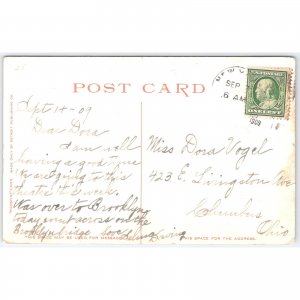 POST CARD
Sept 14-09
Dear Dora
I am well
having a good time
we are going to this
theatre this week.
Was over to Brooklyn
today went across on the
Brooklyn bridge
Miss Dora Vogel
423 E. Livingston Ave
Columbus
Ohio
SEP
6 AM
1909
THIS SPACE MAY BE USED FOR MESSAGE
THIS SPACE FOR THE ADDRESS.